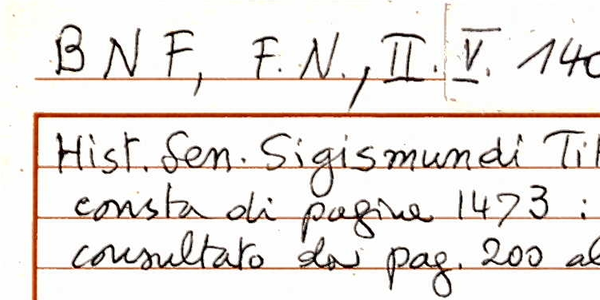 BNF, F.N., II. V. 140
Hist. Sen. Sigismundi Tit
consta di pagine 1473 :
consultato da pag. 200 al